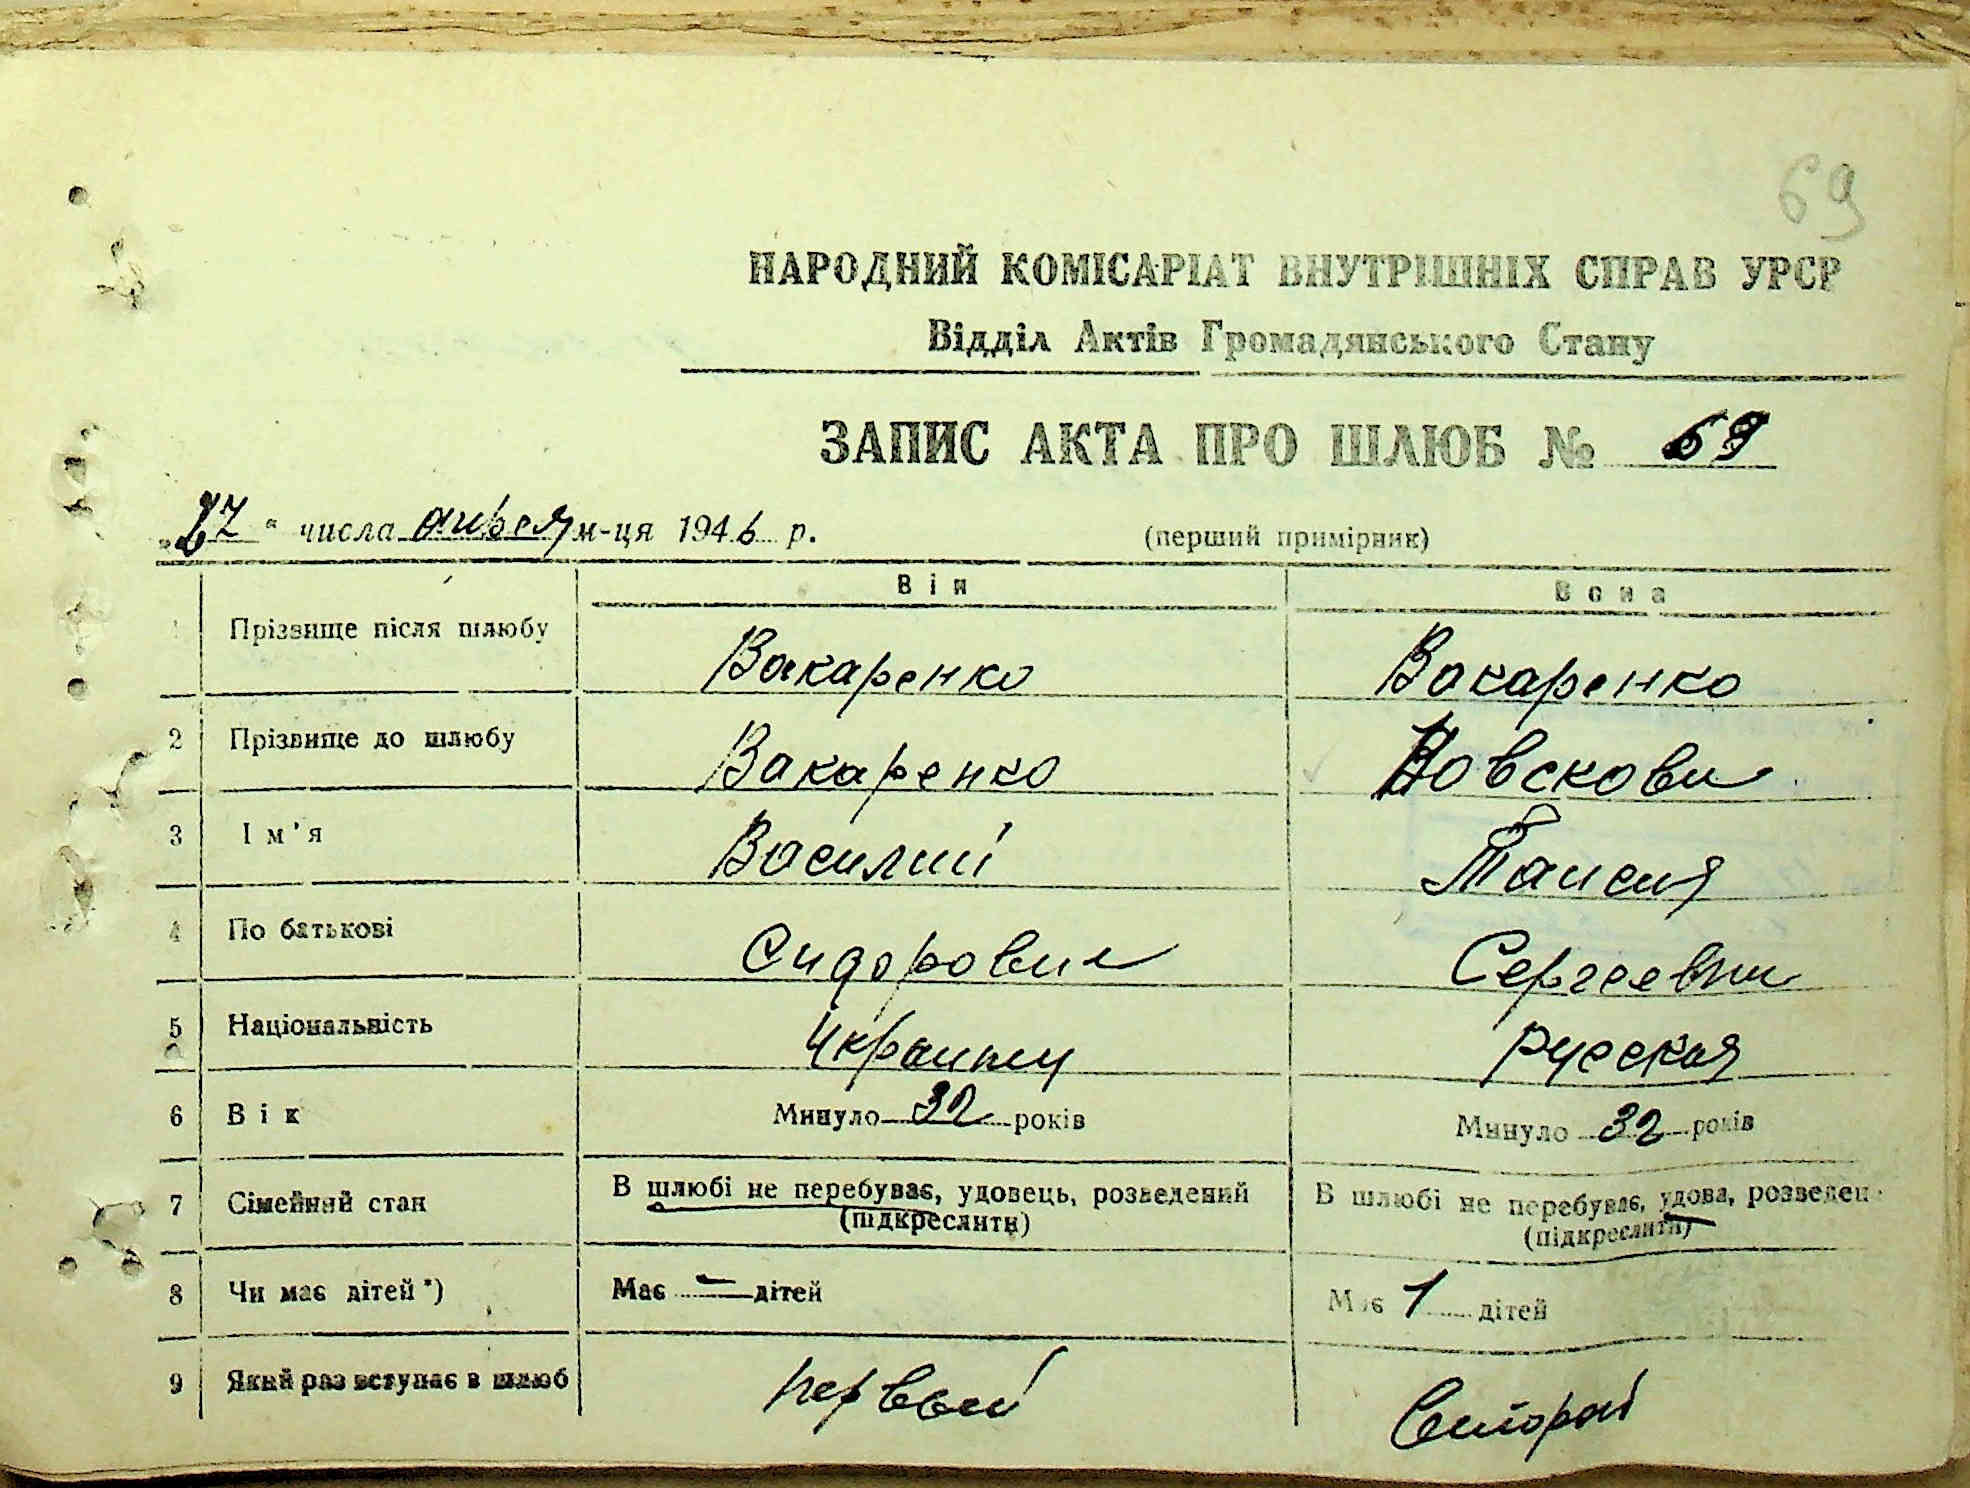 69
НАРОДНИЙ КОМІСАРІАТ ВНУТРІШНІХ СПРАВ УРСР
Відділ Актів Громадянського Стану
ЗАПИС АКТА ПРО ШЛЮБ № 69
„27“ числа апреля м-ця 1946 р. (перший примірник)
Він Вона
1 Прізвище після шлюбу Вакаренко Вакаренко
2 Прізвище до шлюбу Вакаренко Новскова
3 Ім'я Василий Таисия
4 По батькові Сидорович Сергеевна
5 Національність Украинец русская
6 Вік Минуло 32 років Минуло 32 років
7 Сімейний стан В шлюбі не перебуває, удовець, розведений В шлюбі не перебуває, удова, розведен
(підкреслити) (підкреслити)
8 Чи має дітей *) Має — дітей Має 1 дітей
9 Який раз вступає в шлюб первый второй